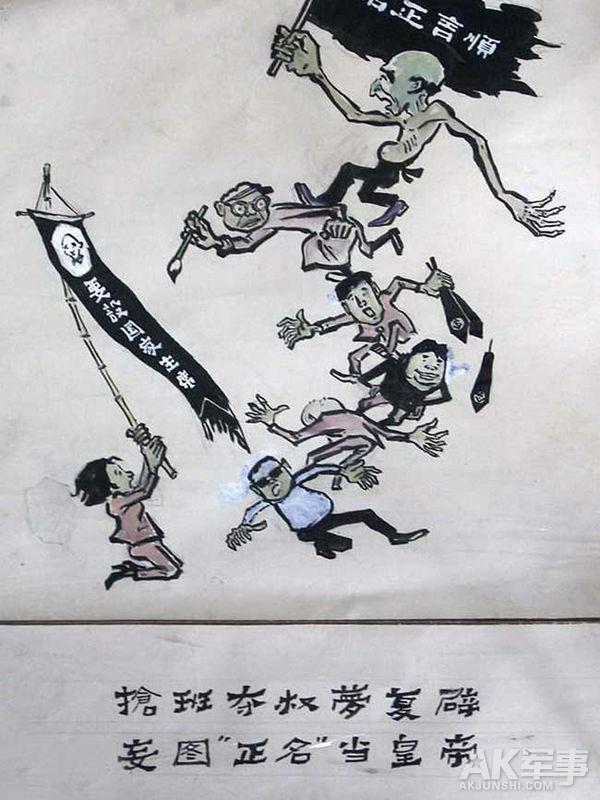 名正言順
要設国家主席
搶班夺权夢复辟
妄图"正名"当皇帝
AK军事
AKJUNSHI.COM